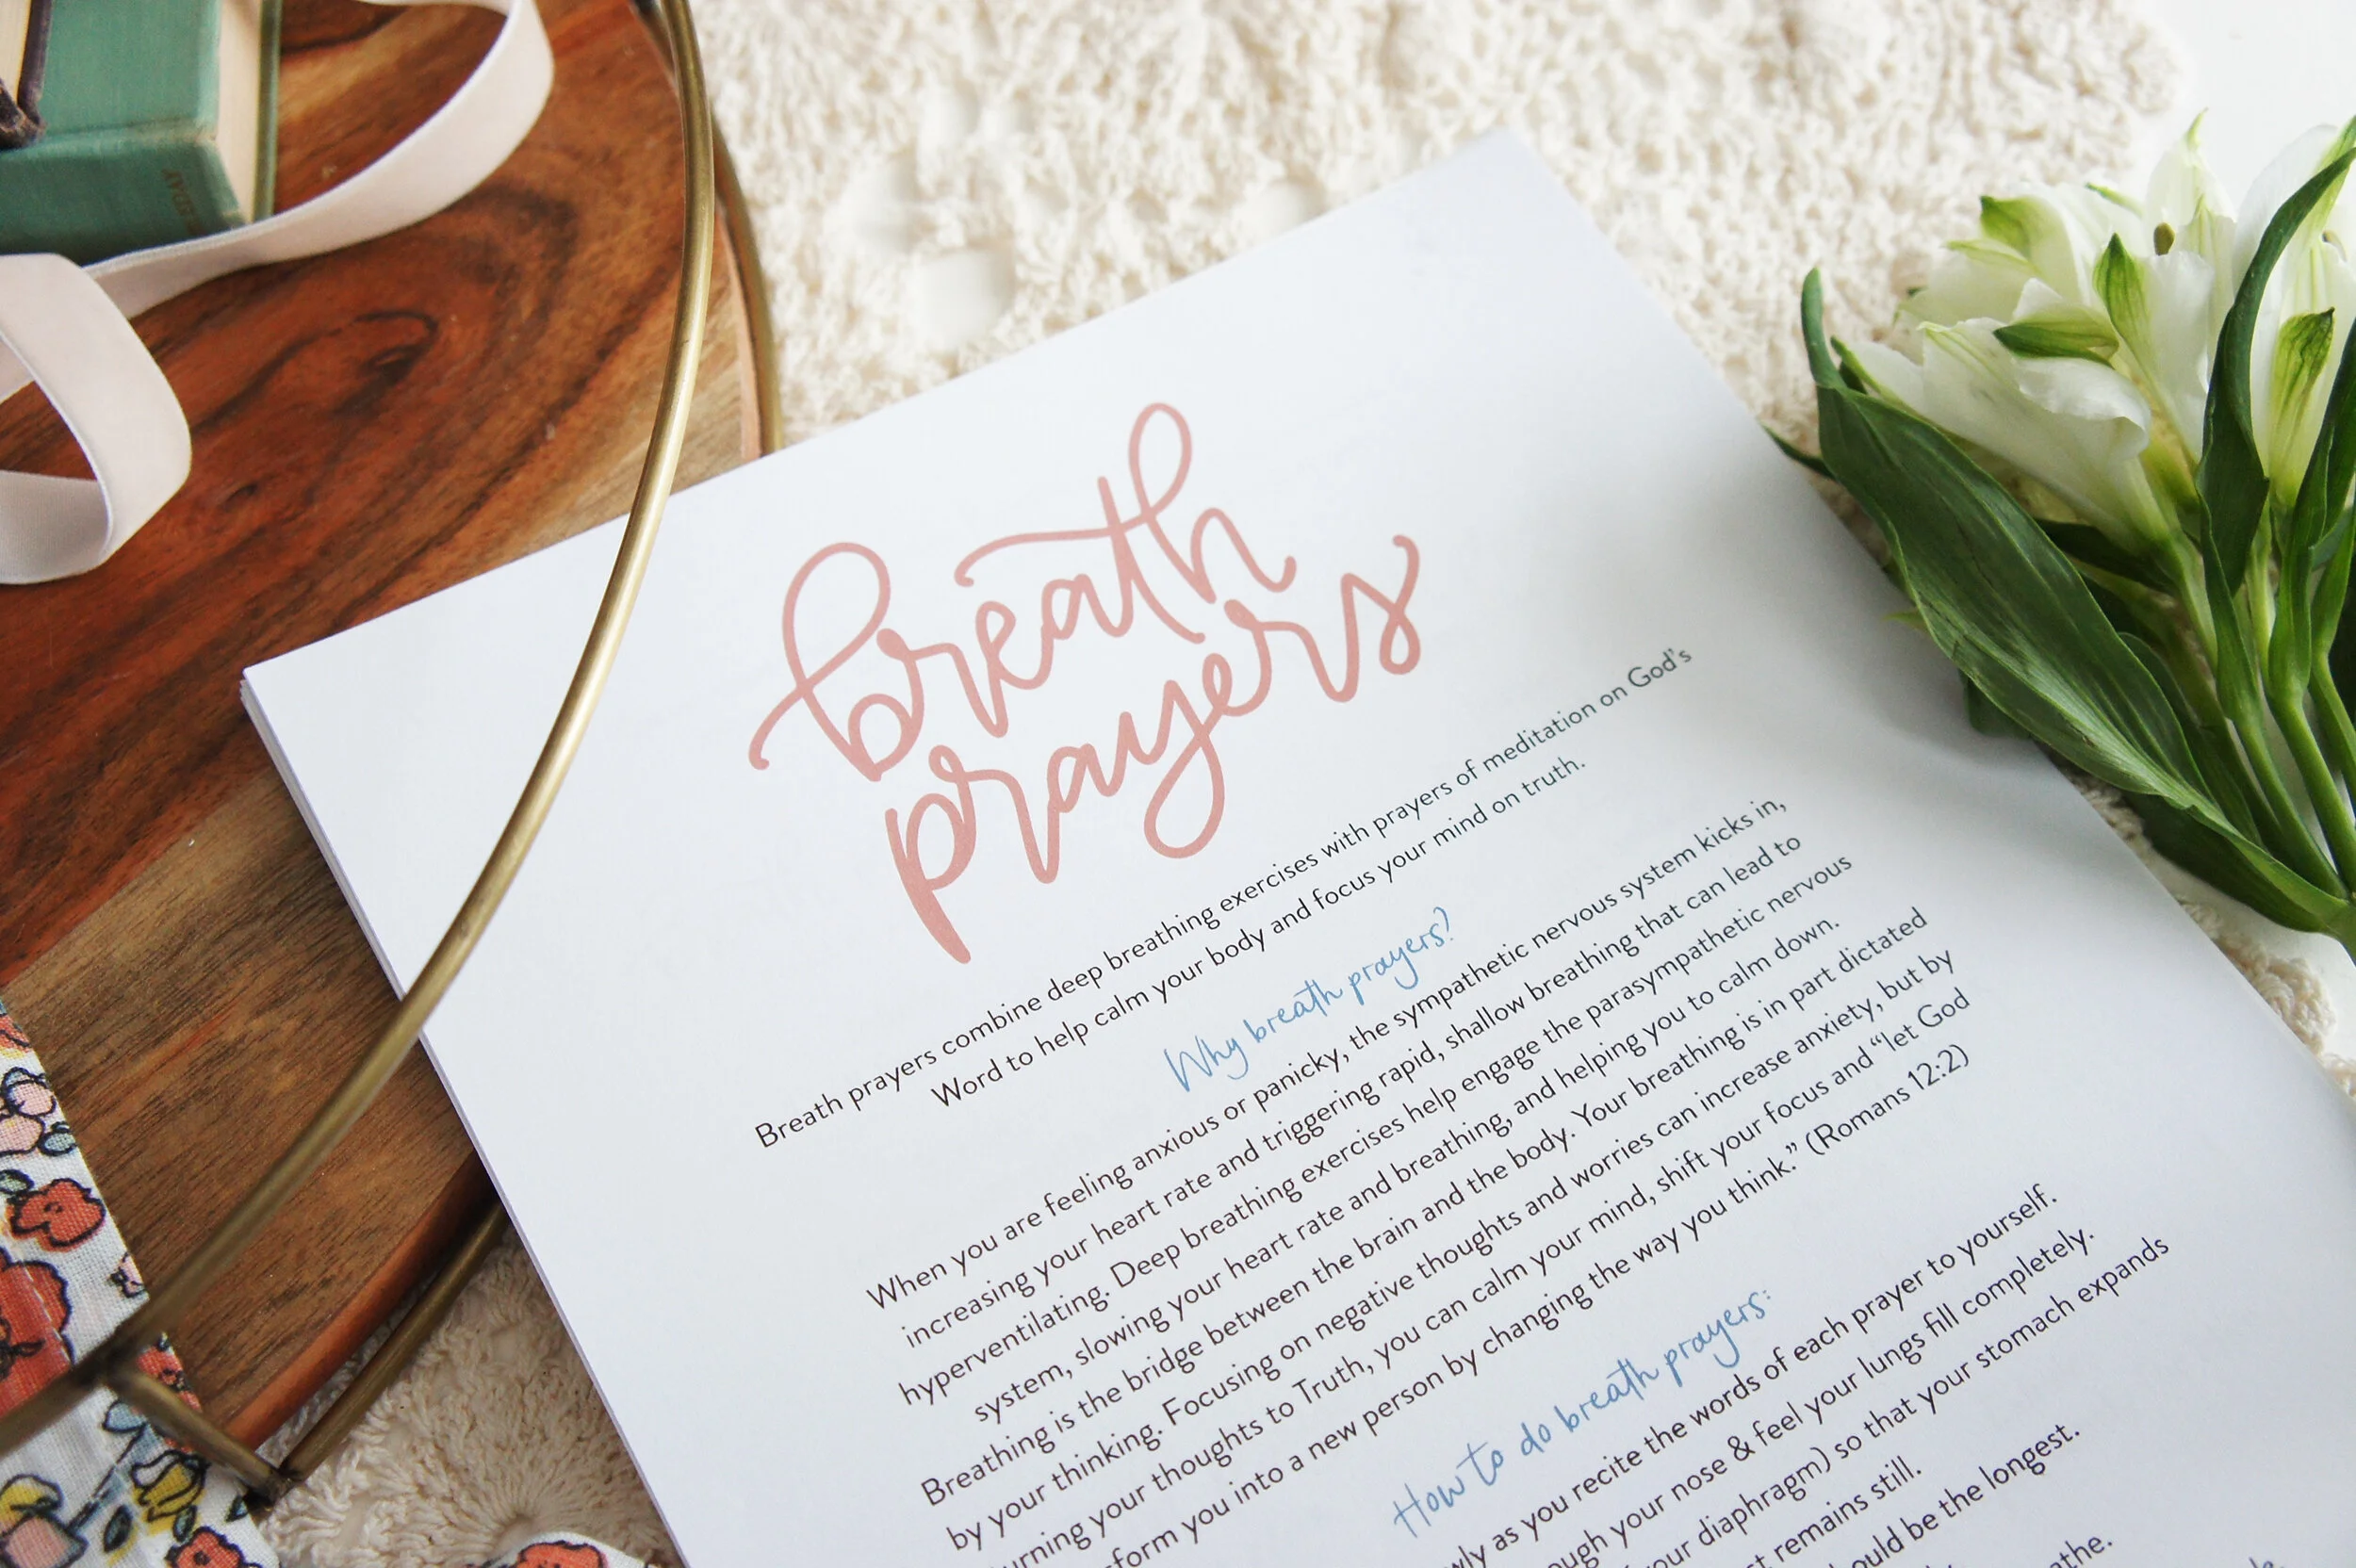 breath
prayers
Breath prayers combine deep breathing exercises with prayers of meditation on God's
Word to help calm your body and focus your mind on truth.
Why breath prayers?
When you are feeling anxious or panicky, the sympathetic nervous system kicks in,
increasing your heart rate and triggering rapid, shallow breathing that can lead to
hyperventilating. Deep breathing exercises help engage the parasympathetic nervous
system, slowing your heart rate and breathing, and helping you to calm down.
Breathing is the bridge between the brain and the body. Your breathing is in part dictated
by your thinking. Focusing on negative thoughts and worries can increase anxiety, but by
urning your thoughts to Truth, you can calm your mind, shift your focus and “let God
sform you into a new person by changing the way you think.” (Romans 12:2)
How to do breath prayers:
wly as you recite the words of each prayer to yourself.
ough your nose & feel your lungs fill completely.
our diaphragm) so that your stomach expands
t remains still.
ould be the longest.
athe.